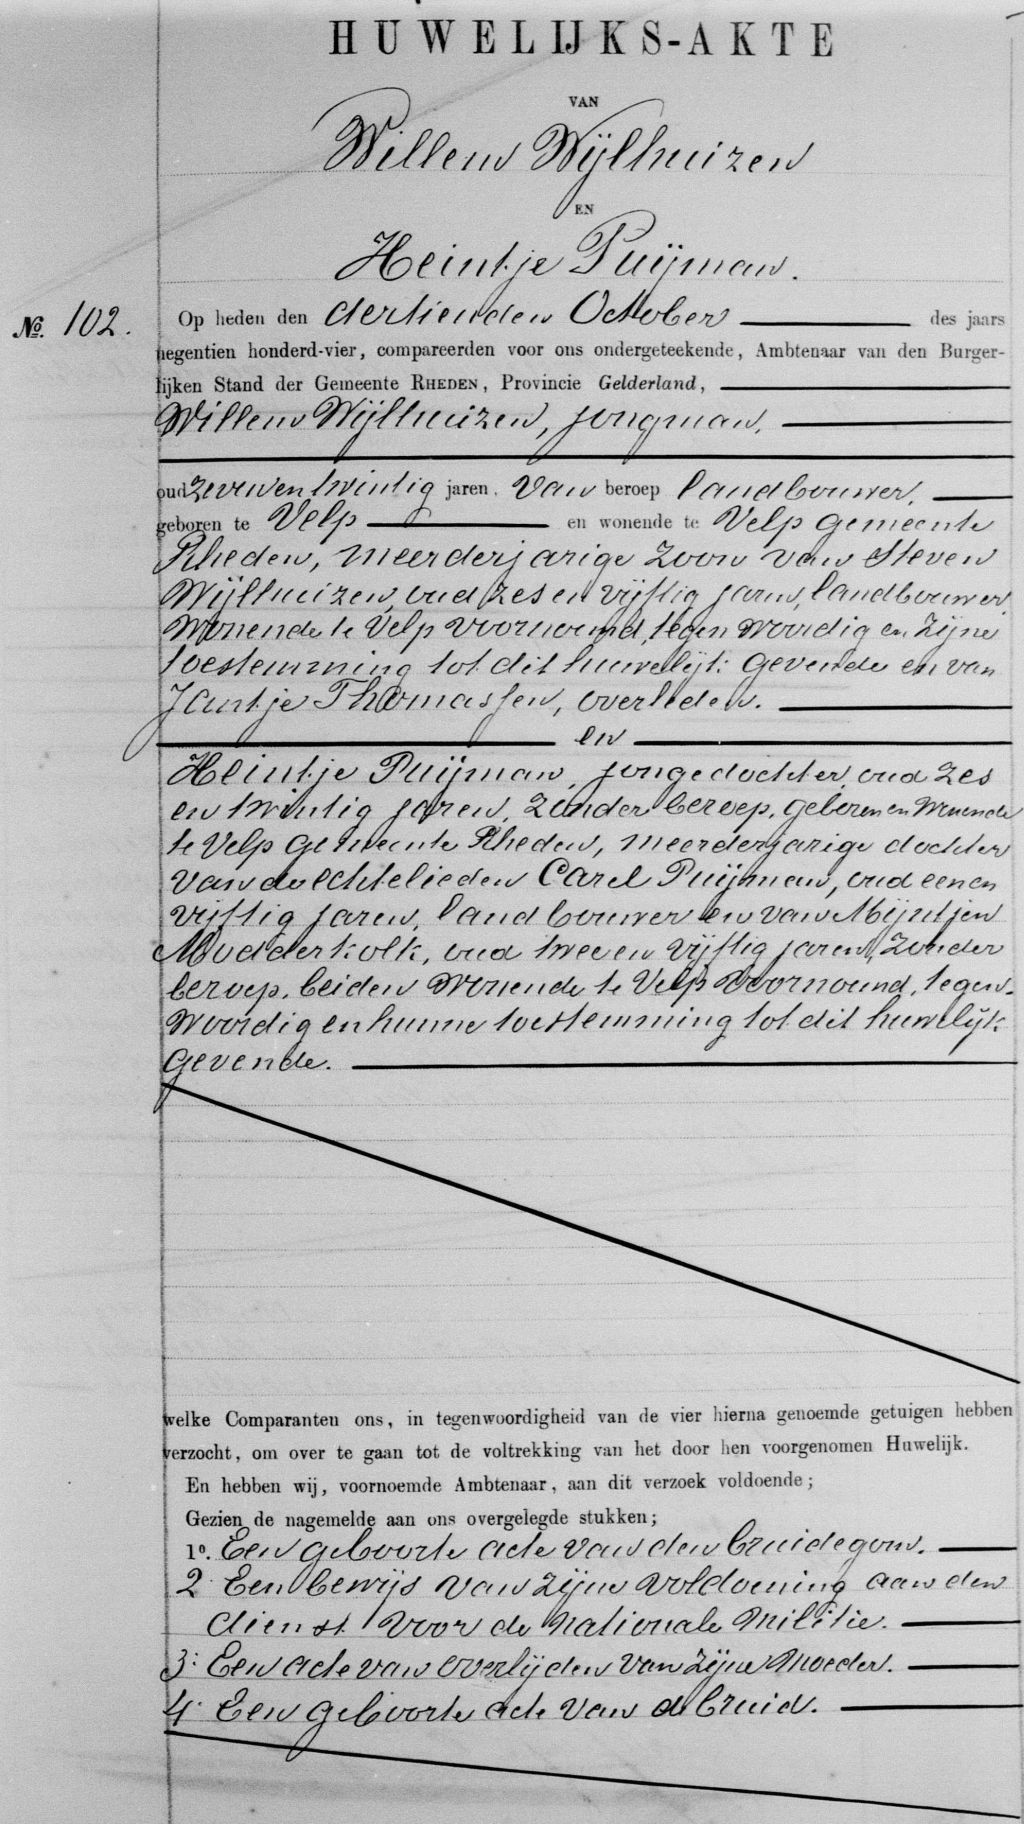 HUWELIJKS-AKTE
VAN
Willem Wijlhuizen
EN
Heintje Puijman.
No. 102.
Op heden den dertienden October des jaars
negentien honderd-vier, compareerden voor ons ondergeteekende, Ambtenaar van den Burger-
lijken Stand der Gemeente RHEDEN, Provincie Gelderland,
Willem Wijlhuizen, jongman,
oud zevenentwintig jaren, van beroep landbouwer,
geboren te Velp en wonende te Velp gemeente
Rheden, meerderjarige zoon van Steven
Wijlhuizen, oud zes en vijftig jaren, landbouwer,
wonende te Velp voornoemd, tegenwoordig en zijne
toestemming tot dit huwelijk gevende en van
Jantje Thomassen, overleden.
en
Heintje Puijman, jongedochter, oud zes
en twintig jaren, zonder beroep, geboren en wonende
te Velp gemeente Rheden, meerderjarige dochter
van de echtelieden Carel Puijman, oud een en
vijftig jaren, landbouwer en van Mijntjen
Modderkolk, oud twee en vijftig jaren, zonder
beroep, beiden wonende te Velp voornoemd, tegen-
woordig en hunne toestemming tot dit huwelijk
gevende.
welke Comparanten ons, in tegenwoordigheid van de vier hierna genoemde getuigen hebben
verzocht, om over te gaan tot de voltrekking van het door hen voorgenomen Huwelijk.
En hebben wij, voornoemde Ambtenaar, aan dit verzoek voldoende;
Gezien de nagemelde aan ons overgelegde stukken;
1o. Een geboorte acte van den bruidegom.
2 Een bewijs van zijne voldoening aan den
dienst voor de nationale militie.
3: Een acte van overlijden van zijne moeder.
4: Een geboorte acte van de bruid.